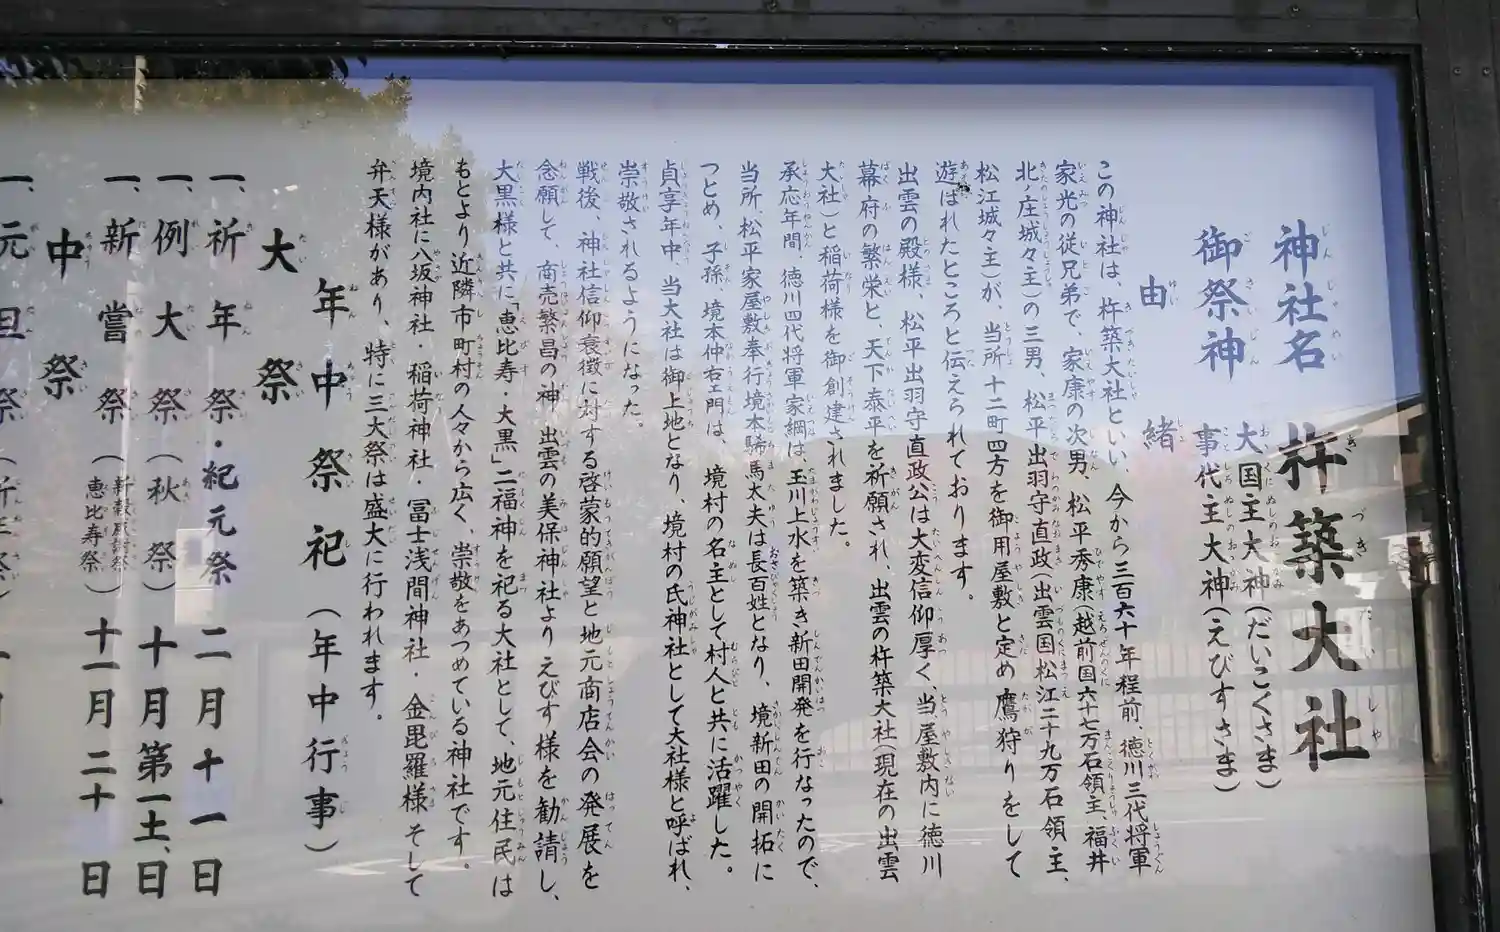 神社名 杵築大社
御祭神 大国主大神(だいこくさま)
事代主大神(えびすさま)
由緒
この神社は、杵築大社といい、今から三百六十年程前、徳川三代将軍
家光の従兄弟で、家康の次男、松平秀康(越前国六十七万石領主、福井
北ノ庄城々主)の三男、松平出羽守直政(出雲国松江二十九万石領主、
松江城々主)が、当所十二町四方を御用屋敷と定め鷹狩りをして
遊ばれたところと伝えられております。
出雲の殿様、松平出羽守直政公は大変信仰厚く、当屋敷内に徳川
幕府の繁栄と、天下泰平を祈願され、出雲の杵築大社(現在の出雲
大社)と稲荷様を御創建されました。
承応年間、徳川四代将軍家綱は、玉川上水を築き新田開発を行なったので、
当所、松平家屋敷奉行境本馬太夫は長百姓となり、境新田の開拓に
つとめ、子孫、境本仲右ヱ門は、境村の名主として村人と共に活躍した。
貞享年中、当大社は御上地となり、境村の氏神社として大社様と呼ばれ、
崇敬されるようになった。
戦後、神社信仰衰微に対する啓蒙的願望と地元商店会の発展を
念願して、商売繁昌の神、出雲の美保神社よりえびす様を勧請し、
大黒様と共に「恵比寿・大黒」二福神を祀る大社として、地元住民は
もとより近隣市町村の人々から広く、崇敬をあつめている神社です。
境内社に八坂神社・稲荷神社・冨士浅間神社・金毘羅様そして
弁天様があり、特に三大祭は盛大に行われます。
年中祭祀(年中行事)
大祭
一、祈年祭・紀元祭 二月十一日
一、例大祭(秋祭) 十月第一土、日
一、新嘗祭(新穀感謝祭 恵比寿祭) 十一月二十日
中祭
一、元旦祭